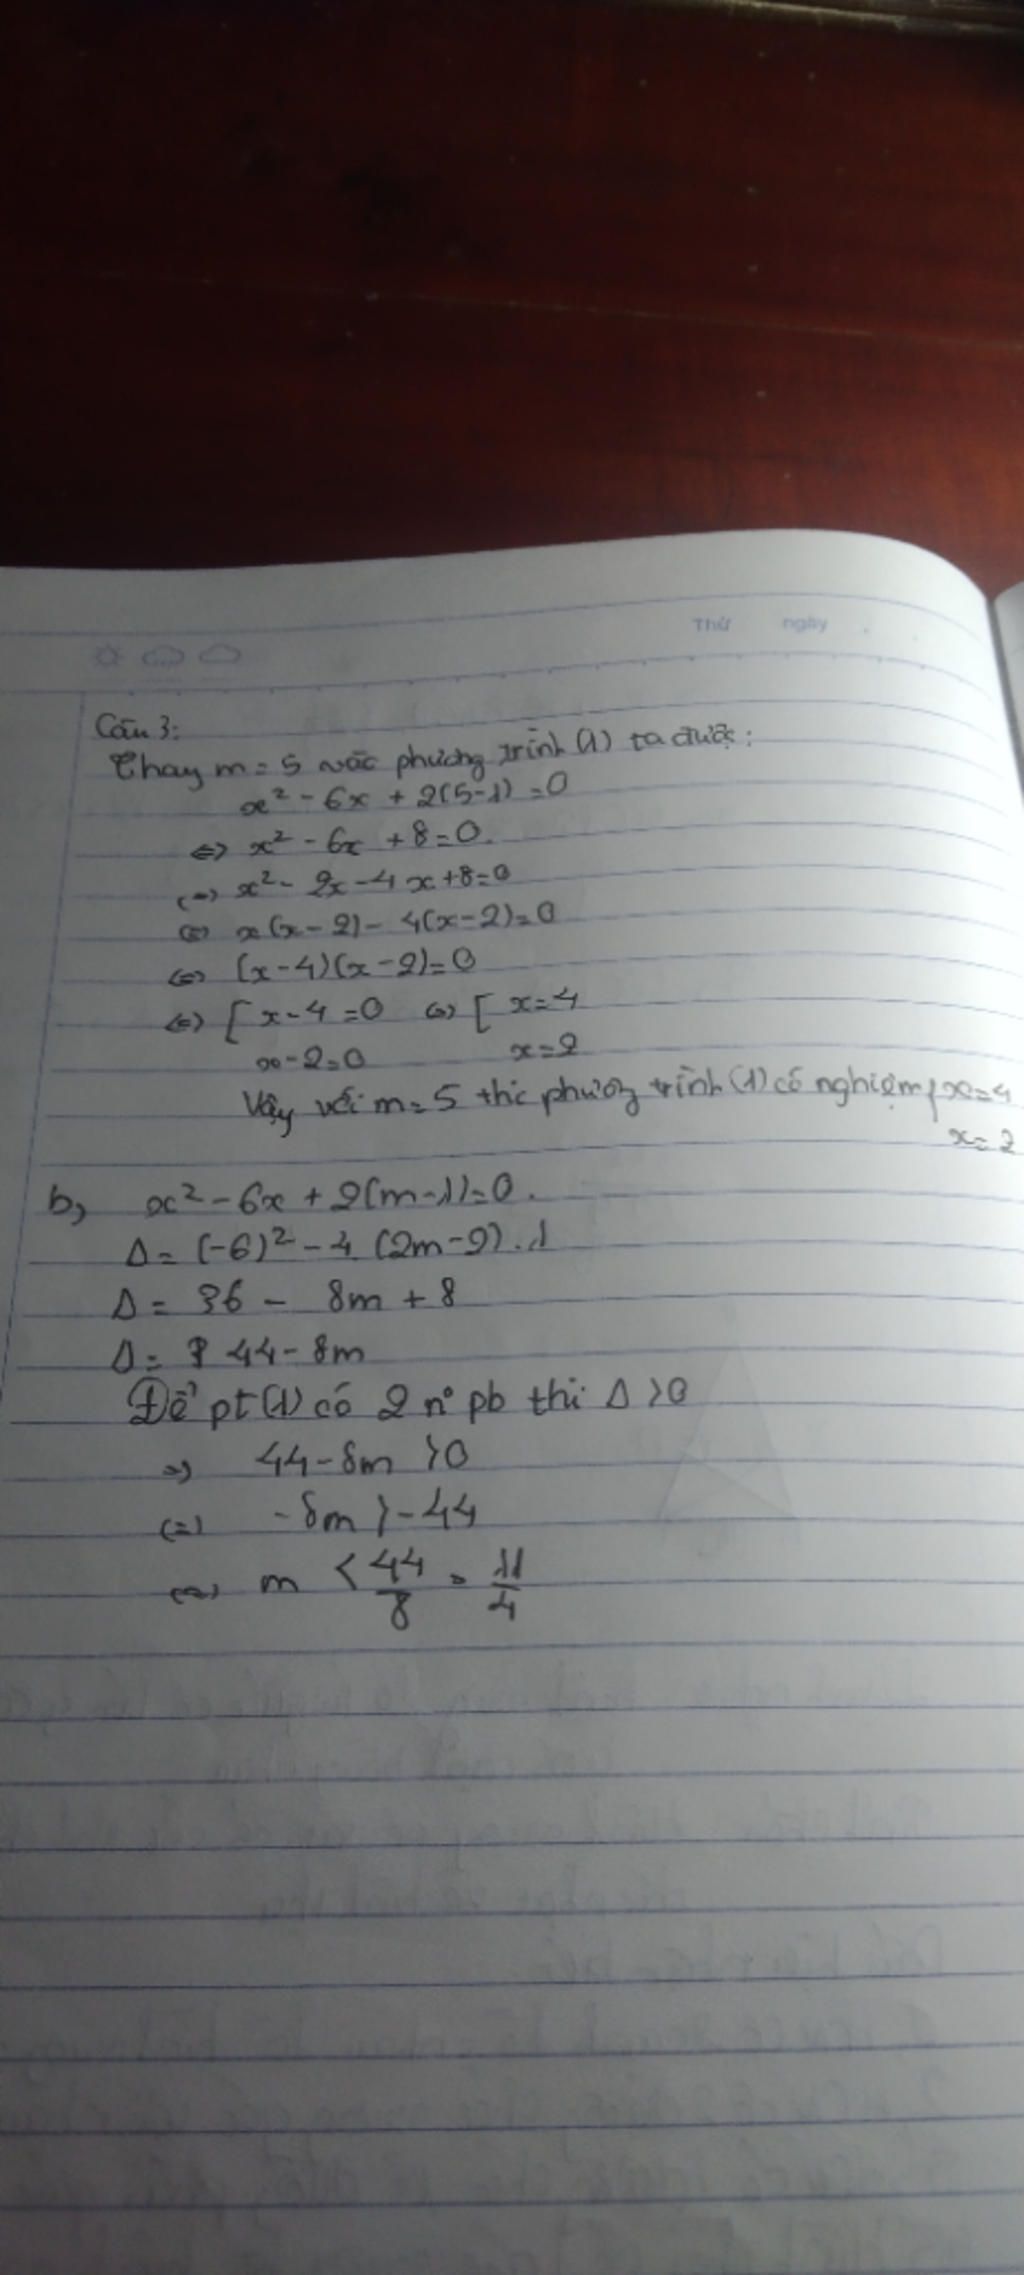 Thứ ngày
Câu 3:
Thay m = 5 vào phương trình (1) ta được:
x² - 6x + 2(5-1) = 0
<=> x² - 6x + 8 = 0.
<=> x² - 2x - 4x + 8 = 0
<=> x(x - 2) - 4(x - 2) = 0
<=> (x - 4)(x - 2) = 0
<=> [ x - 4 = 0 <=> [ x = 4
x - 2 = 0 x = 2
Vậy với m = 5 thì phương trình (1) có nghiệm { x = 4
x = 2
b, x² - 6x + 2(m - 1) = 0.
Δ = (-6)² - 4 (2m - 2) . 1
Δ = 36 - 8m + 8
Δ = 44 - 8m
Để pt (1) có 2 n° pb thì Δ > 0
=> 44 - 8m > 0
<=> - 8m > - 44
<=> m < 44/8 = 11/4